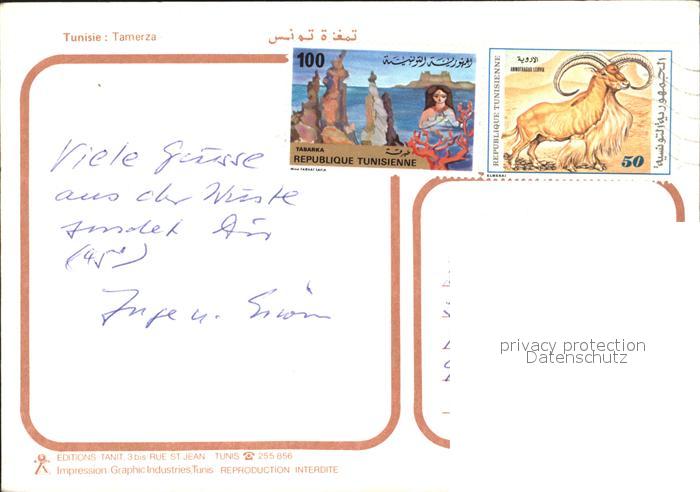 Tunisie : Tamerza
تمغزة تونس
100
الجمهورية التونسية
TABARKA
REPUBLIQUE TUNISIENNE
REPUBLIQUE TUNISIENNE
الأروية
AMMOTRAGUS LERVIA
الجمهورية التونسية
50
Viele Grüsse
aus der Wüste
sendet Dir
(45°)
Inge u.
privacy protection
Datenschutz
EDITIONS TANIT, 3 bis RUE ST JEAN TUNIS ☎ 255 856
Impression: Graphic Industries, Tunis REPRODUCTION INTERDITE